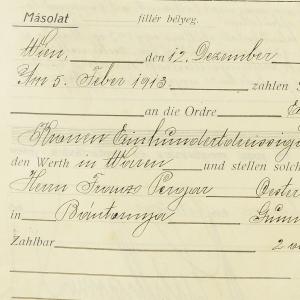 Másolat fillér bélyeg.
Wien, den 12. Dezember
Am 5. Feber 1913. zahlen
an die Ordre
Kronen Einhundertdreissig
den Werth in Waren und stellen solch
Herrn Franz Pengar Oester
in Bántornya
Zahlbar 2